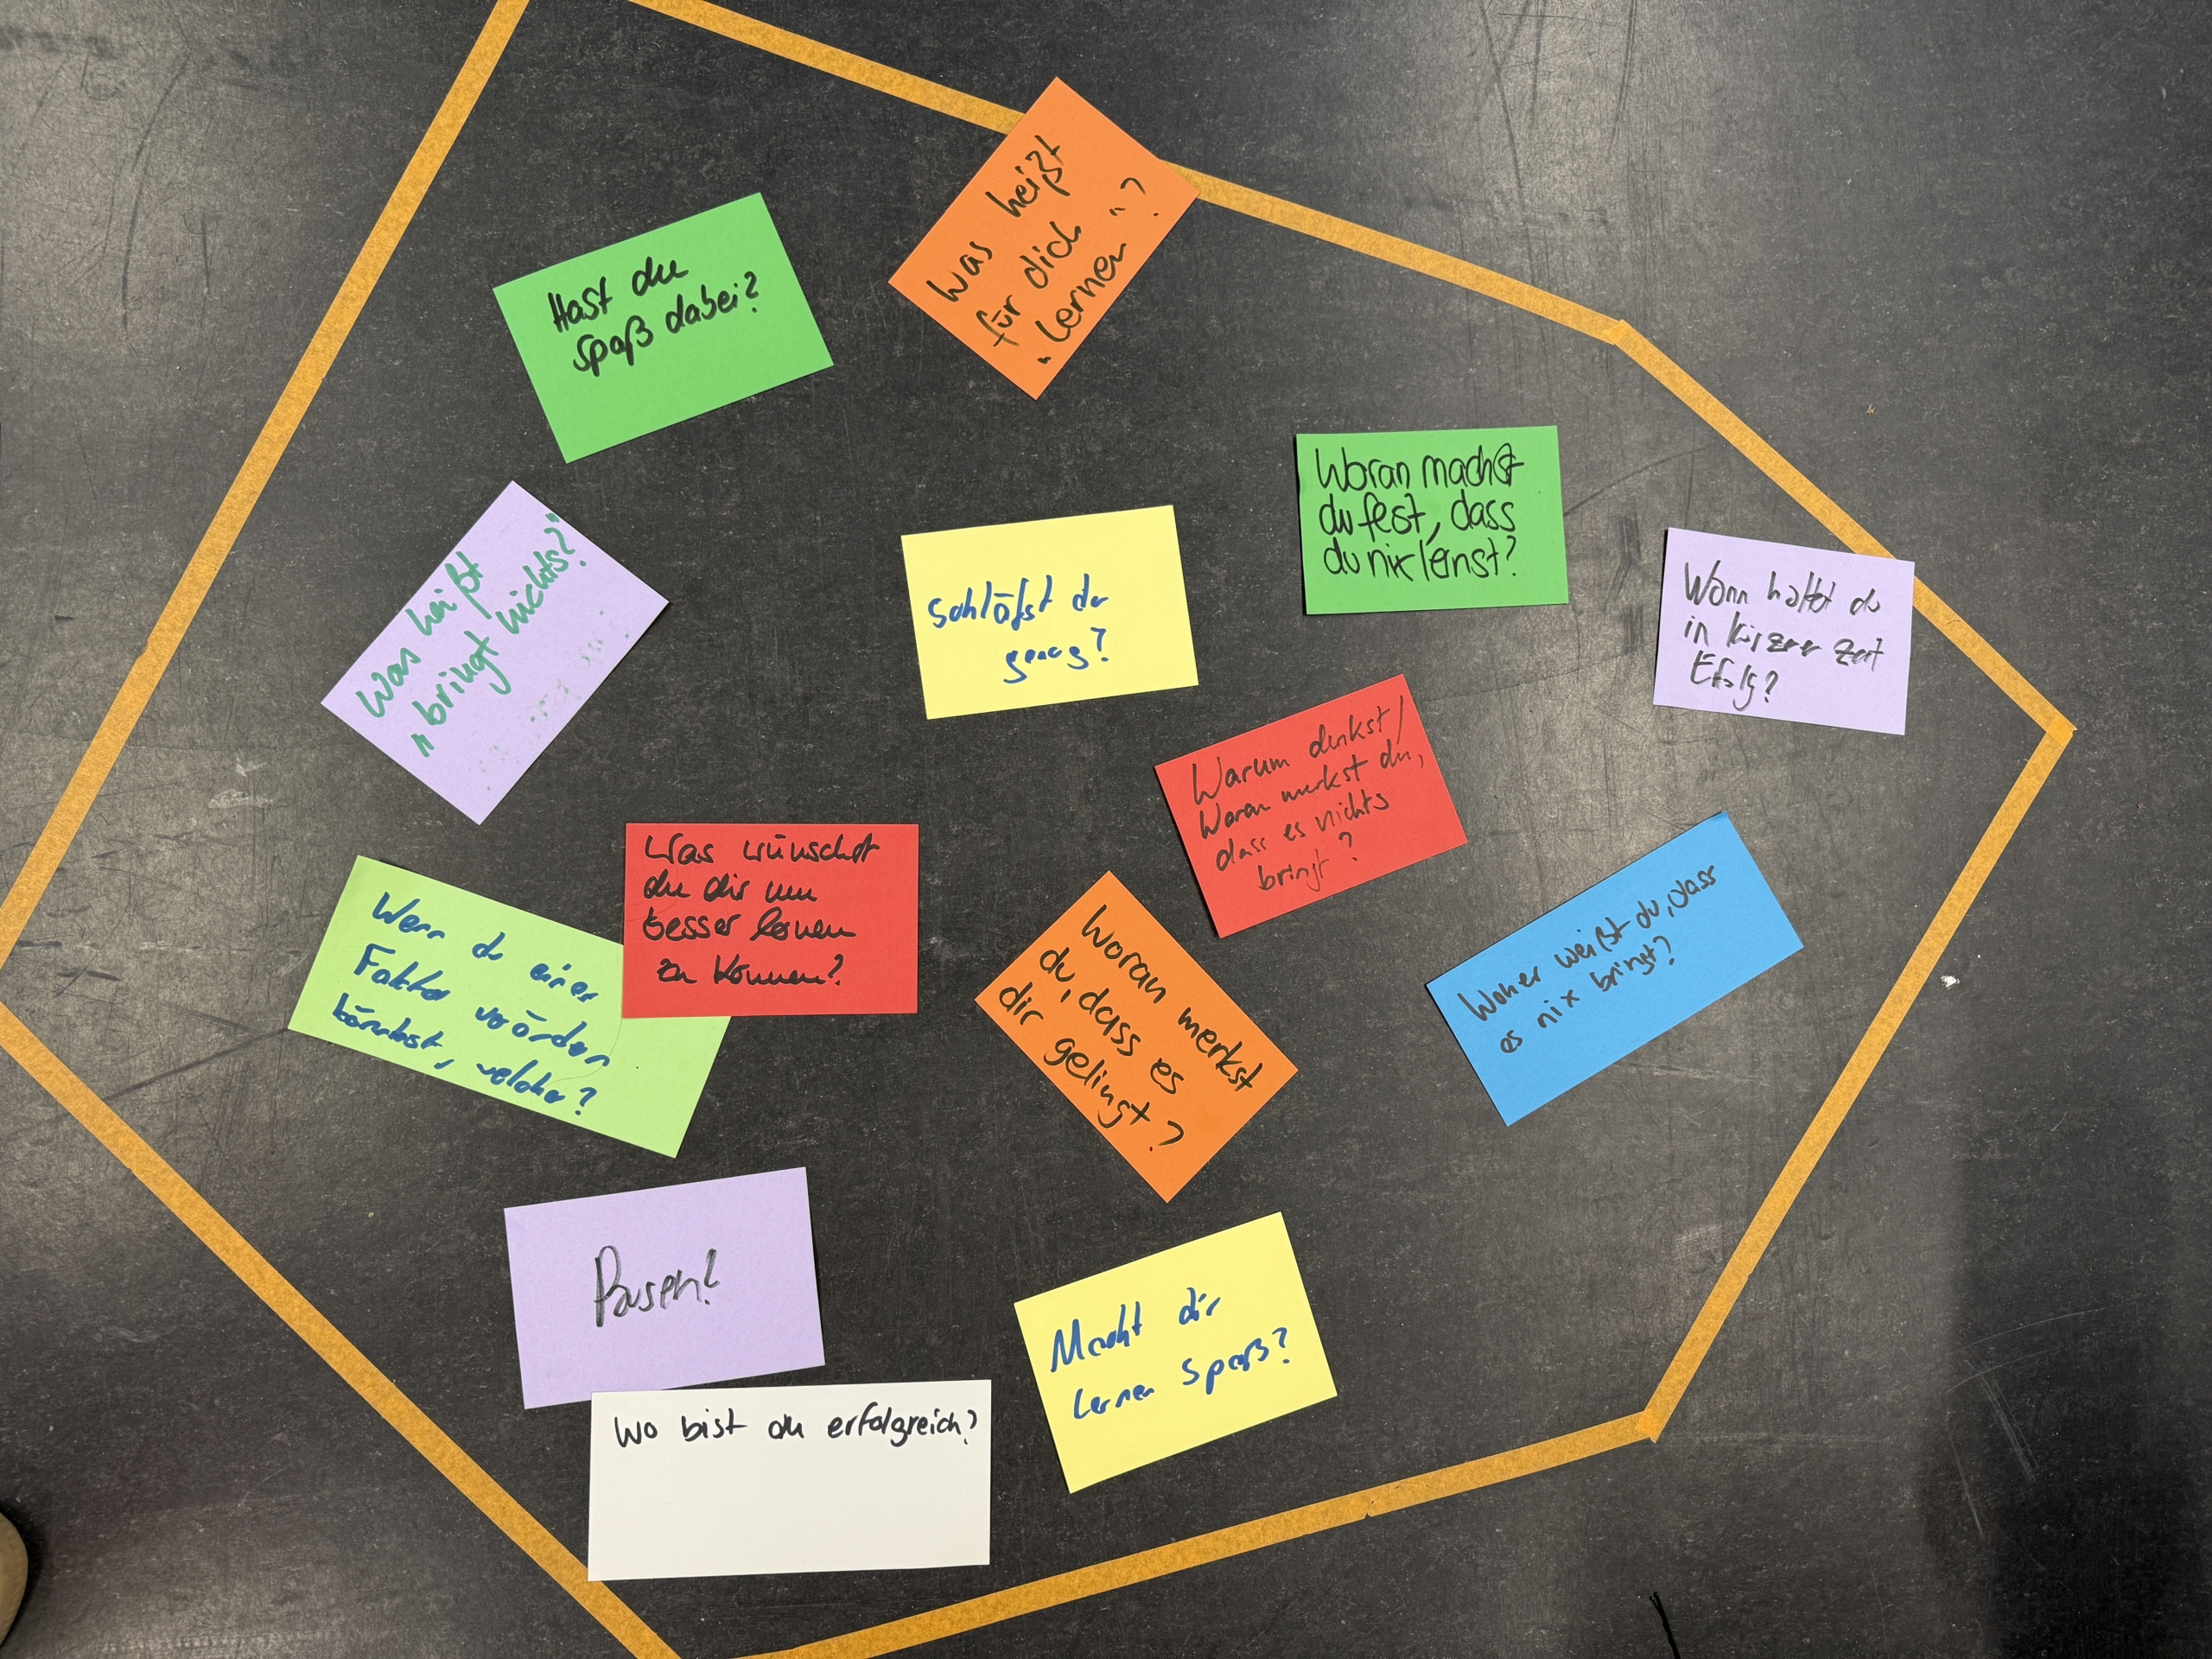 Was heißt
für dich
"Lernen"?
Hast du
Spaß dabei?
Woran machst
du fest, dass
du nix lernst?
Was heißt
"bringt nichts?"
Schläfst du
genug?
Wann hattest du
in kürzer Zeit
Efolg?
Warum denkst/
Woran merkst du,
dass es nichts
bringt?
Was wünschst
du dir um
besser lernen
zu können?
Wenn du einen
Faktor verändern
könntest, welcher?
Woran merkst
du, dass es
dir gelingt?
Woher weißt du, dass
es nix bringt?
Pausen?
Macht dir
Lernen Spaß?
Wo bist du erfolgreich?